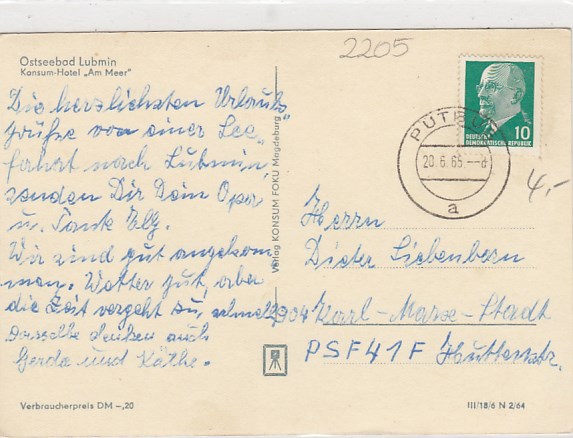 Ostseebad Lubmin
Konsum-Hotel „Am Meer"
2205
Die herzlichsten Urlaubs
grüße von einer See
fahrt nach Lubmin,
senden Dir Dein Opa
u. Tante Elly.
Wir sind gut angekom
men. Wetter gut, aber
die Zeit vergeht zu schnell
Dasselbe denken auch
Gerda und Käthe.
Verbraucherpreis DM -,20
Verlag KONSUM FOKU Magdeburg
PUTBUS
20.6.65
a
10
DEUTSCHE
DEMOKRATISCHE REPUBLIK
4,-
Herrn
Dieter Liebenbern
904 Karl-Marx-Stadt
PSF 41 F
III/18/6 N 2/64